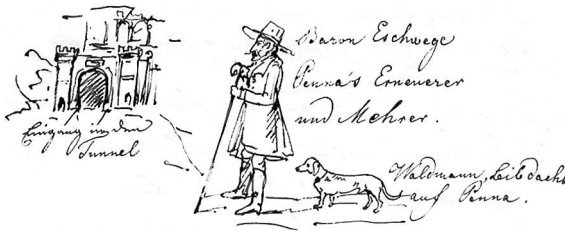 Eingang in den
Tunnel
Baron Eschwege
Penna's Erneuerer
und Mehrer.
Waldmann, Leibdachs
auf Penna.